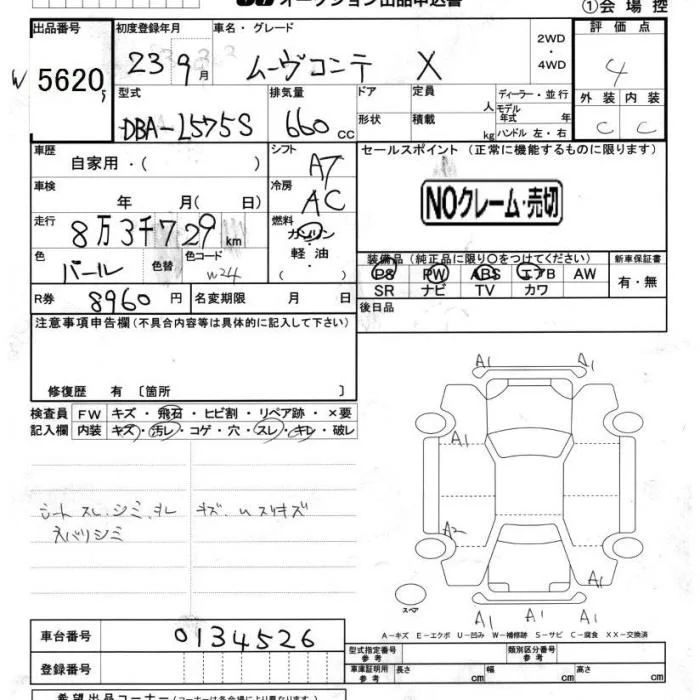 オークション出品申込書
①会場控
出品番号 初度登録年月 車名・グレード 2WD ・ 4WD 評価点
W 5620 23 9月 ムーヴコンテ X 4
型式 排気量 ドア 定員 人 ディーラー・並行 外装 内装
DBA-L575S 660 cc 形状 積載 kg モデル年式 年 ハンドル 左・右 C C
車歴 自家用・( ) シフト AT セールスポイント (正常に機能するものに限ります)
車検 年 月( 日) 冷房 AC
NOクレーム・売切
走行 8万3千729 km 燃料 ガソリン 軽油 ( )
色 パール 色替 色コード W24
装備品 (純正品に限り○をつけてください) 新車保証書
PS PW ABS エアB AW 有・無
SR ナビ TV カワ
R券 8960 円 名変期限 月 日 後日品
注意事項申告欄(不具合内容等は具体的に記入して下さい)
修復歴 有 〔箇所 〕
検査員 FW キズ・飛石・ヒビ割・リペア跡・×要
記入欄 内装 キズ・汚レ・コゲ・穴・スレ・キレ・破レ
シート スレ、シミ、
シミ
A1 A1
A1
A2
A1
A1 A1 A1
スペア
A-キズ E-エクボ U-凹み W-補修跡 S-サビ C-腐食 XX-交換済
車台番号 0134526
型式指定番号 参考 類別区分番号 参考
登録番号 車庫証明用 参考 長さ cm 幅 cm 高さ cm
希望出品コーナー(コーナーは各会場により異なります)